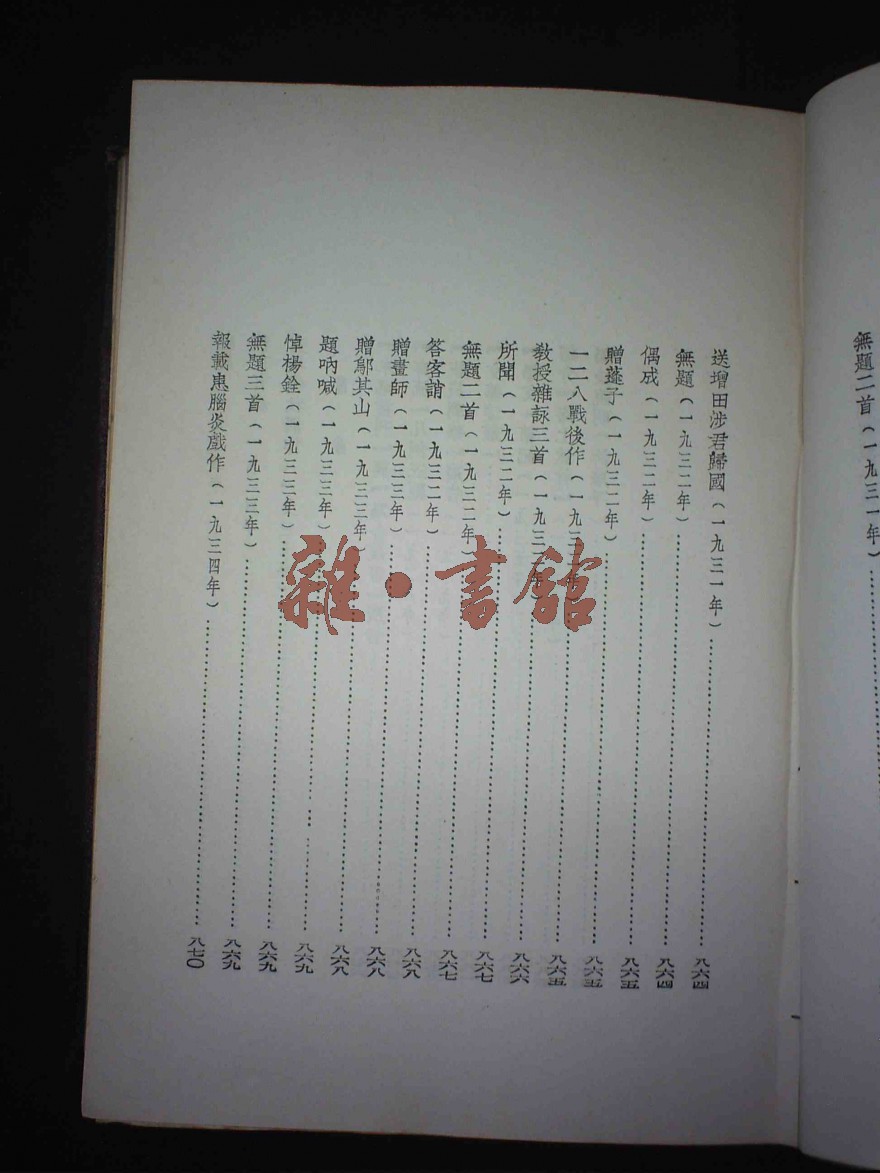 無題二首(一九三一年)
送增田涉君歸國(一九三一年)……八六四
無題(一九三二年)……八六四
偶成(一九三二年)……八六五
贈蓬子(一九三二年)……八六五
一二八戰後作(一九三二年)……八六五
教授雜詠三首(一九三二年)……八六六
所聞(一九三二年)……八六七
無題二首(一九三二年)……八六七
答客誚(一九三二年)……八六八
贈畫師(一九三三年)……八六八
贈鄔其山(一九三三年)……八六八
題吶喊(一九三三年)……八六九
悼楊銓(一九三三年)……八六九
無題三首(一九三三年)……八六九
報載患腦炎戲作(一九三四年)……八七〇
雜·書館